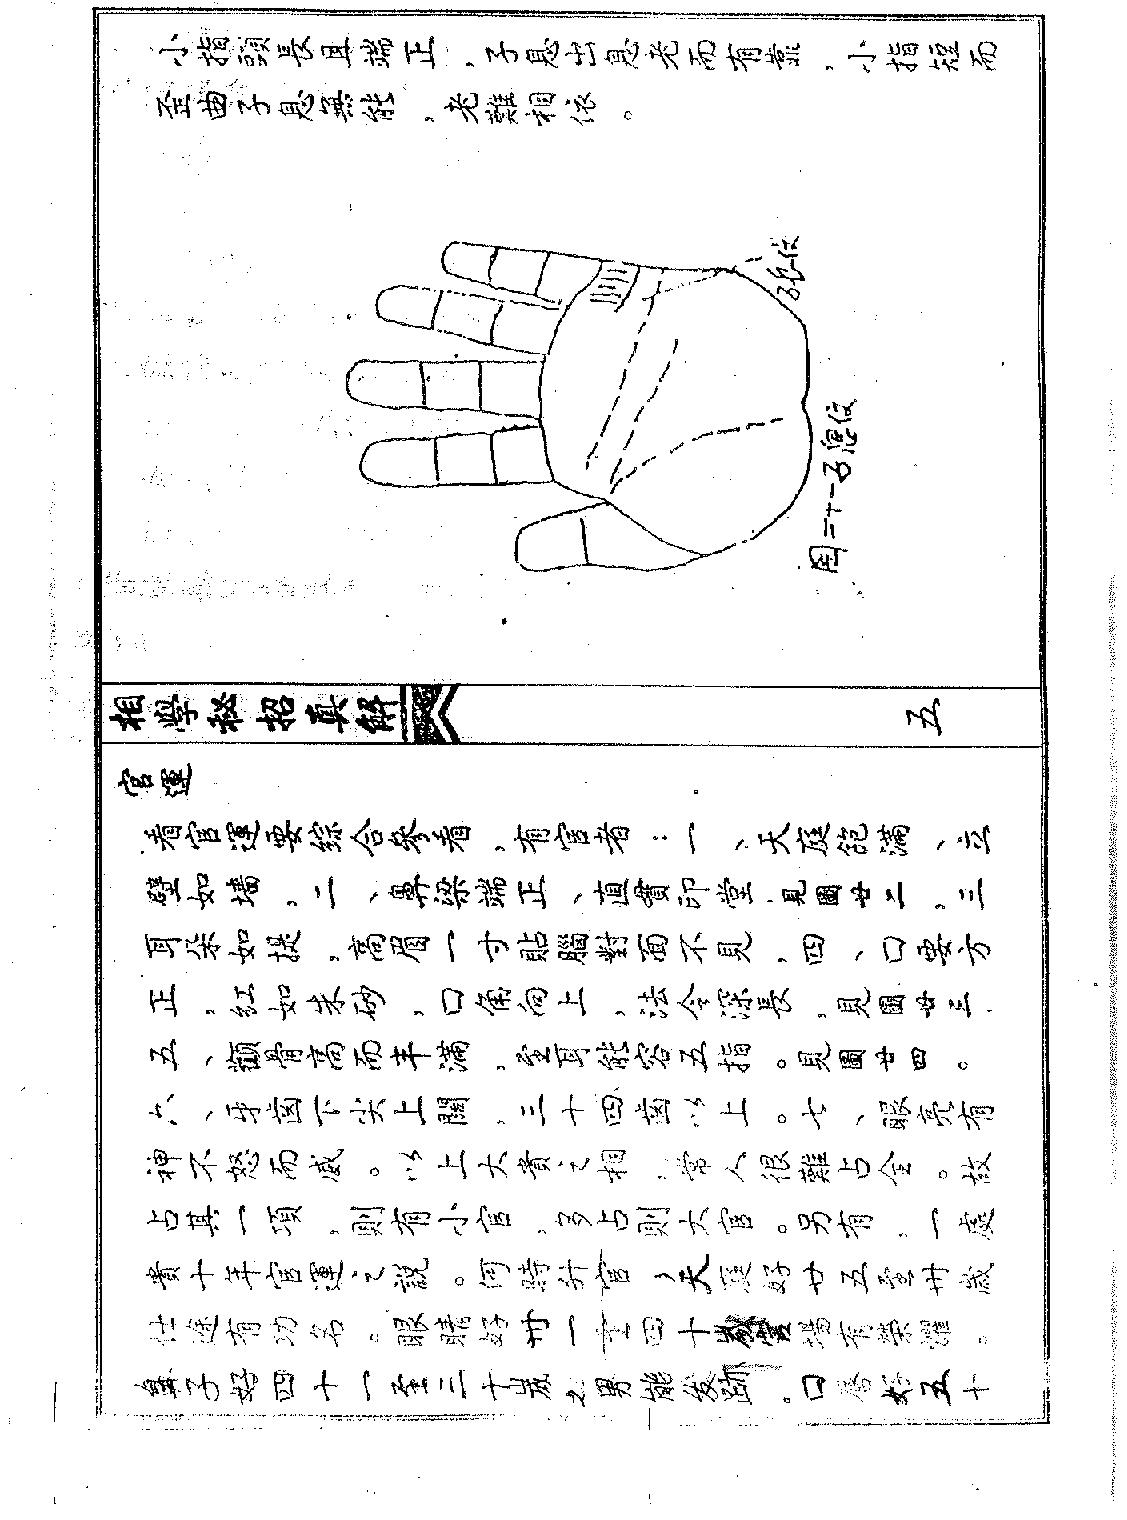 小指頭長且端正，子息出息老而有靠，小指短而
歪曲子息無能，老難相依。
子息位
圖二十一子息位
相學秘招真解
五
官運
看官運要綜合參看，有官者：一、天庭飽滿、立
壁如墻，二、鼻梁端正、直貫印堂，見圖廿二，三
耳朵如提，高眉一寸貼腦對面不見，四、口要方
正，紅如朱砂，口角向上，法令深長，見圖廿三．
五、顴骨高而丰滿，至耳能容五指。見圖廿四。
六、牙齒下尖上闊，三十四齒以上。七、眼亮有
神不怒而威。以上大貴之相，常人很難占全。故
占其一項，則有小官，多占則大官。另有，一處
貴十年官運之說。何時升官，天庭好廿五至卅歲
仕途有功名。眼睛好卅一至四十 場有榮耀。
鼻子好四十一至三十歲之男能發跡。口唇好五十